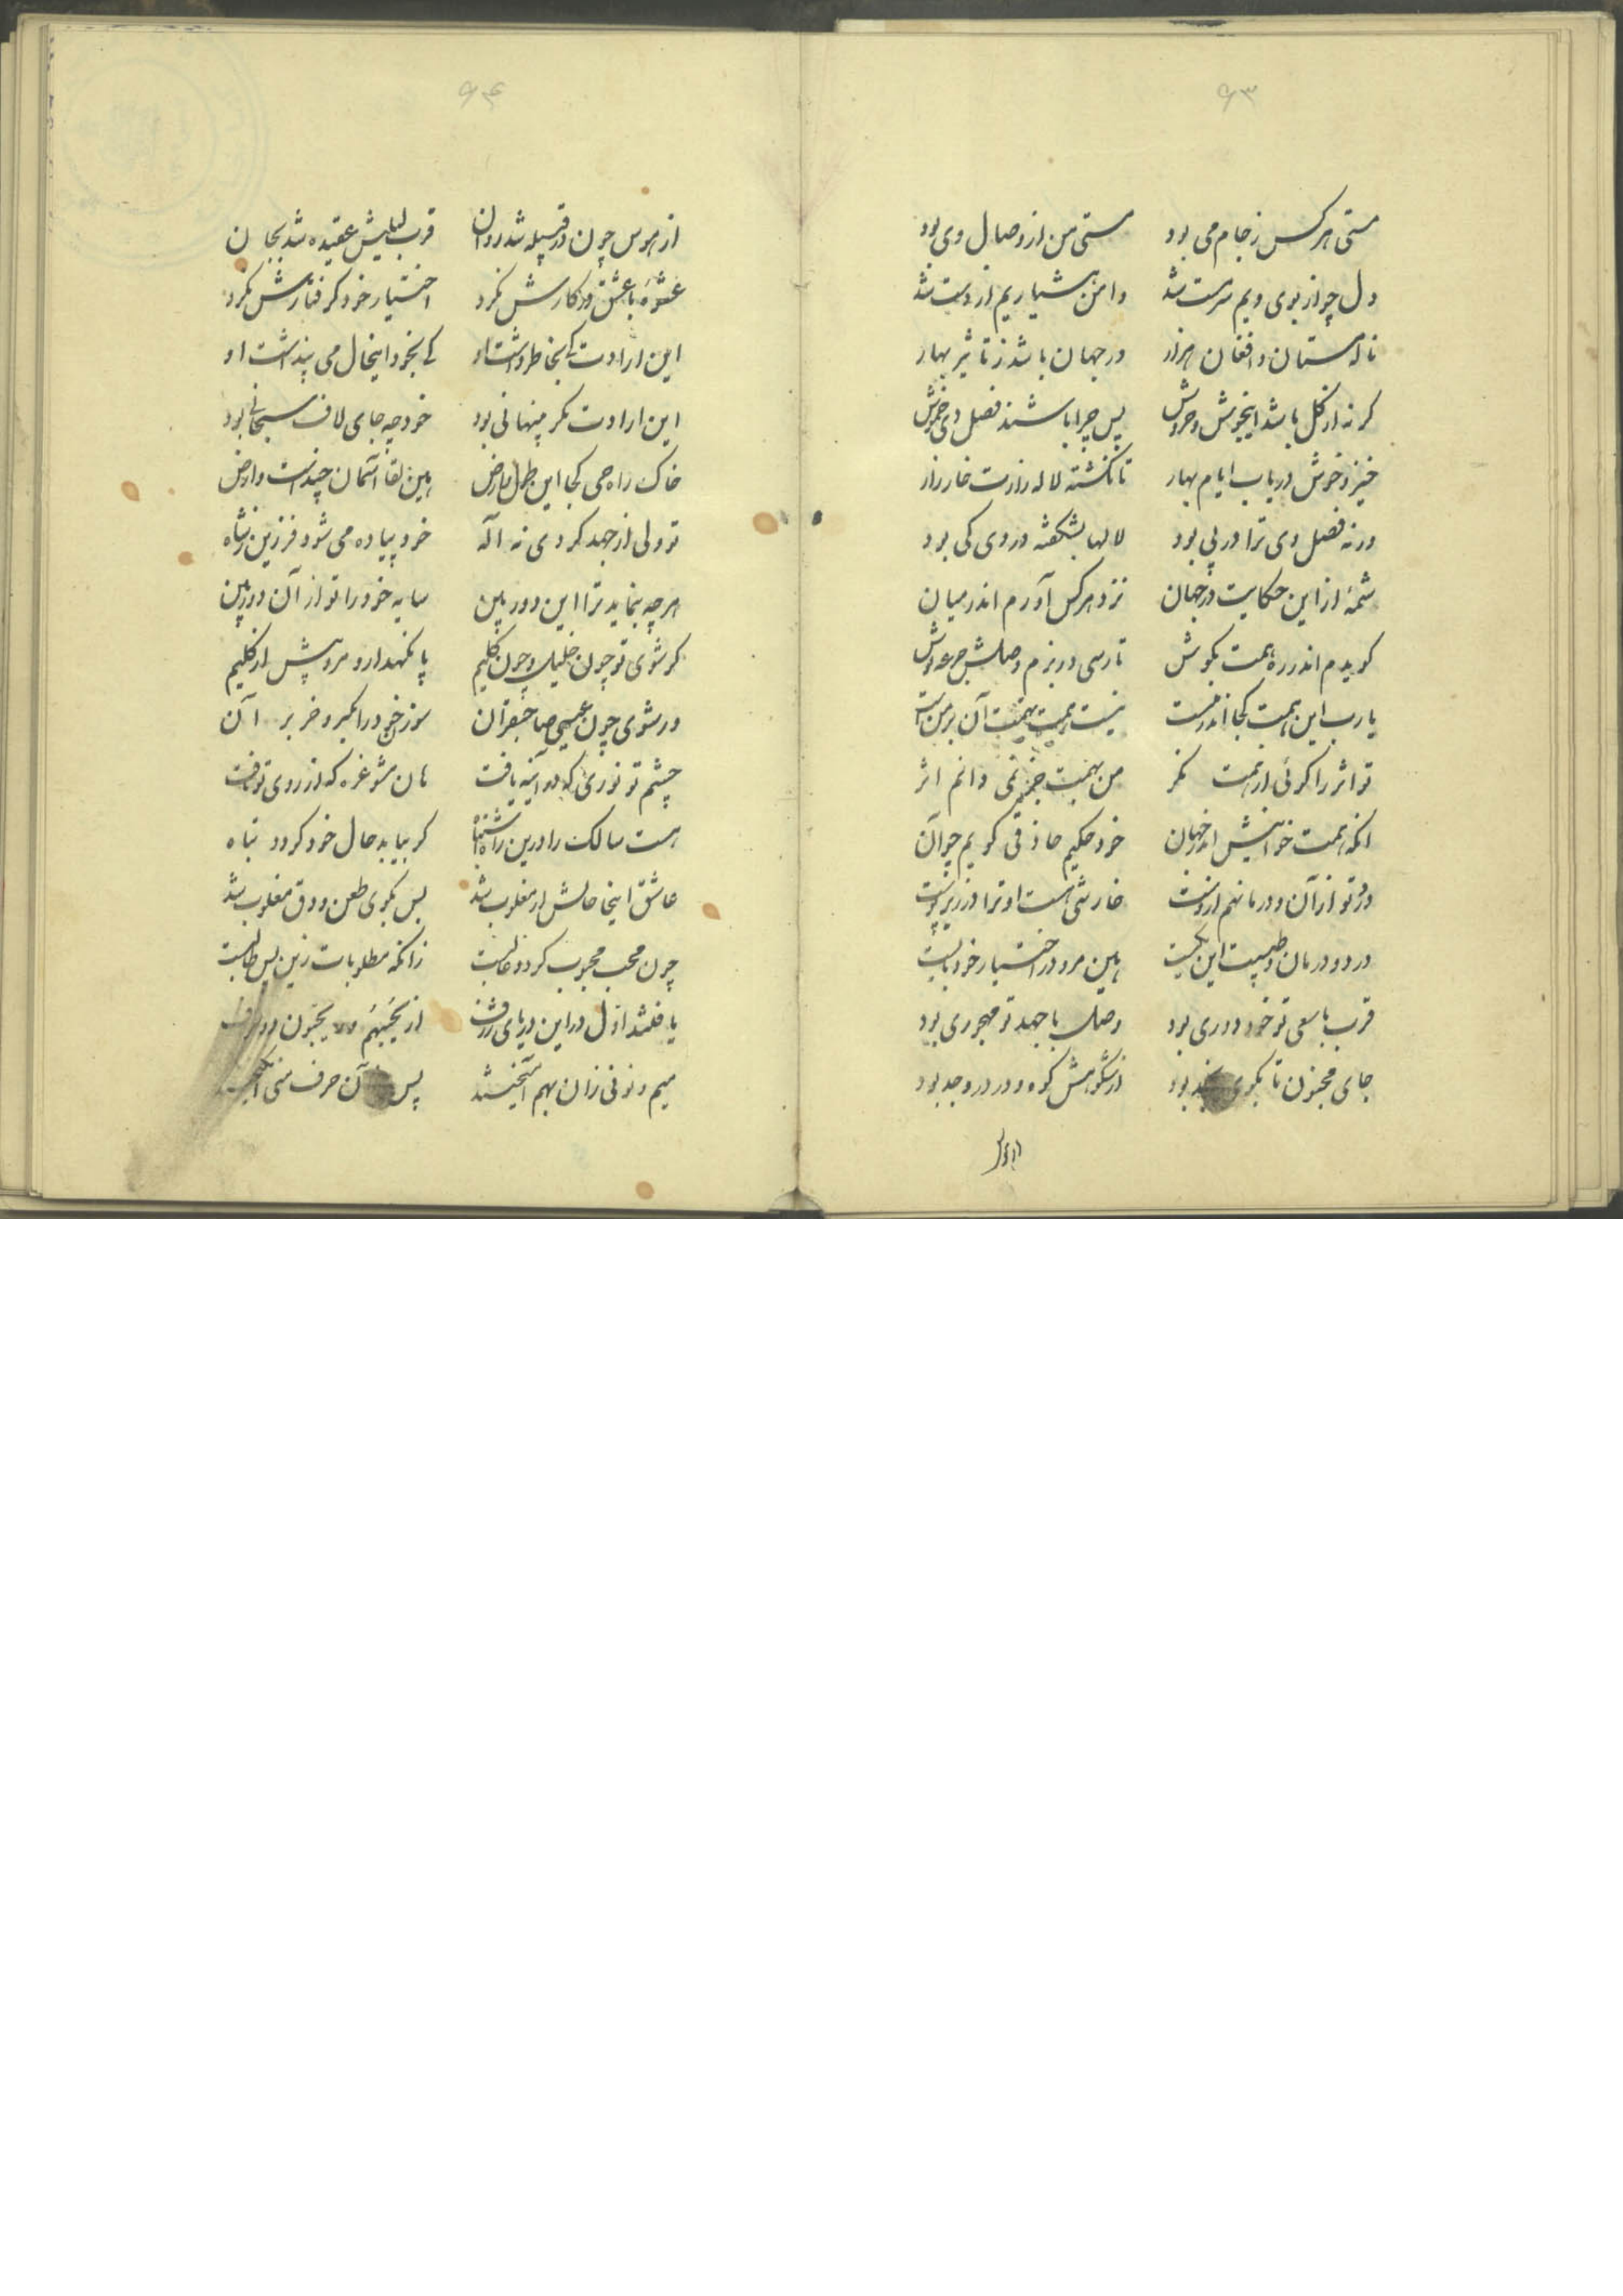 ۶۳
مستی هرکس ز جام می بود مستی من از وصال وی بود
دل چو از بوی ویم سرمست شد دامن هشیاریم از دست شد
ناله مستان و افغان هزار در جهان باشد ز تاثیر بهار
کر نه از کل باشد اینجوش و خروش پس چرا باشند فصل دی خموش
خیز و خوش دریاب ایام بهار تا نکشته لاله زارت خارزار
ورنه فصل دی ترا در پی بود لالها بشکفته در دی کی بود
شمهٔ از این حکایت در جهان نزد هر کس آورم اندر میان
کویدم اندر ره همت بکوش تا رسی در بزم وصلش جرعه نوش
یا رب این همت کجا اندر منست نیست همت تهمت آن بر من است
تو اثر را کوئی از همت نکر من بهمت خود نمی دانم اثر
انکه همت خواهیش اندر جهان خود حکیم حاذقی کویم چو آن
درد تو از آن و درمانهم ازوست خارشی هست او ترا در زیر پوست
درد و درمان و طبیبت این یکیست هین مرو در اختیار خود بایست
قرب با سعی تو خود دوری بود وصل با جهد تو مهجوری بود
جای مجنون تا بکوی نجد بود از شکوهش کوه و در در وجد بود
از هوس
۶۴
از هوس چون در قبیله شد روان قرب لیلیش عقیده شد بجان
عشوهٔ با عشق در کارش نکرد اختیار خود کرفتارش نکرد
این ارادت کی بخاطر داشت او کی بخود اینحال می پنداشت او
این ارادت مکر پنهانی بود خود چه جای لاف سبحانی بود
خاک راه حی کجا این طول و عرض هین لقا آسمان چند است و ارض
تو ولی از جهد کردی نه اله خود پیاده می شود فرزین نه شاه
هر چه بنماید ترا این دوربین سایه خود را تو از آن دور بین
کر شوی تو چون خلیل و چون کلیم پا نکهدار و مرو بیش از کلیم
ور شوی چون عیسی صاحبقران سوزن خود را مبر و خر بر آن
چشم تو نوری که در آئینه یافت هان مشو غره که از روی تو تافت
هست سالک را درین راه اشتباه کر بیابد حال خود کردد تباه
عاشق اینجا حالش ار مغلوب شد بس بکوی طعن و دق مغلوب شد
چون محب محبوب کردد غالبت زانکه مطلوبات زین پس طالبت
یافتند اول در این دریای ژرف از یحبهم و یحبون دو حرف
میم و نونی زان بهم آمیختند پس آن حرف منی